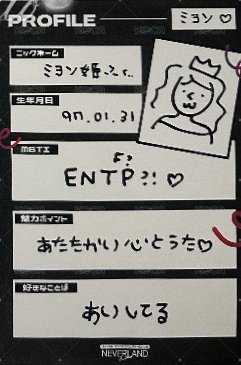 PROFILE
ミヨン♡
ニックネーム
ミヨン姫
生年月日
97.01.31
MBTI
F?
ENTP?!♡
魅力ポイント
あたたかい心とうた♡
好きなことば
あいしてる
NEVERLAND